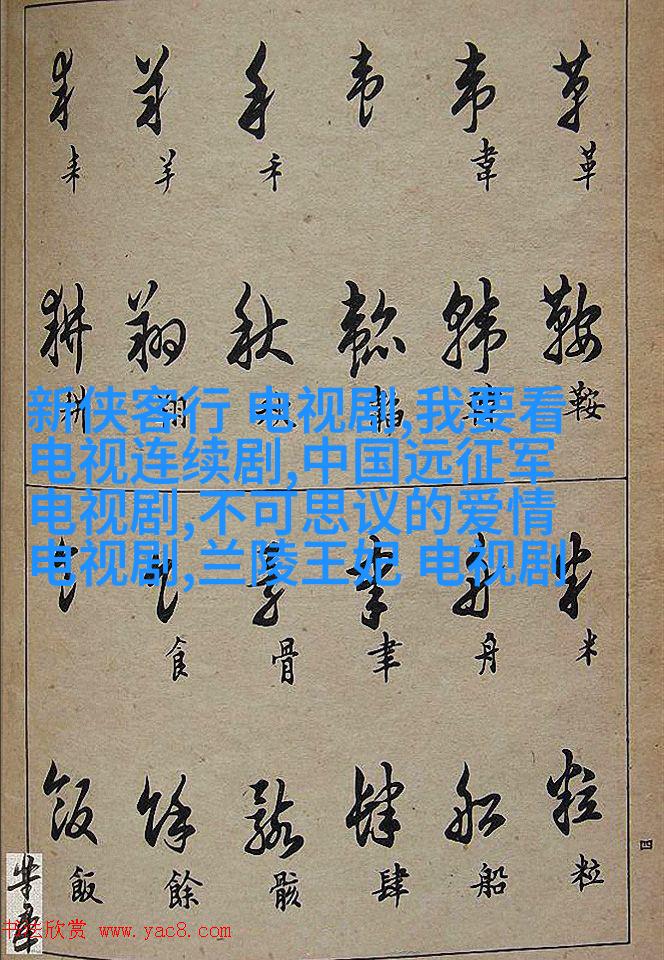 革 韋 韋 禾 羊 耒
革 韋 禾 羊 耒
鞍 韓 韜 秋 翔 耕
鞍 韜 翔 耕
新侠客行 电视剧,我要看
电视连续剧,中国远征军
电视剧,不可思议的爱情
电视剧,兰陵王妃 电视剧
米 舟 聿 骨 食
米 舟 聿 骨 食
粒 船 肆 骸 餘 飯
粒 船 肆 骸 餘 飯
四
书法欣赏 www.yac8.com